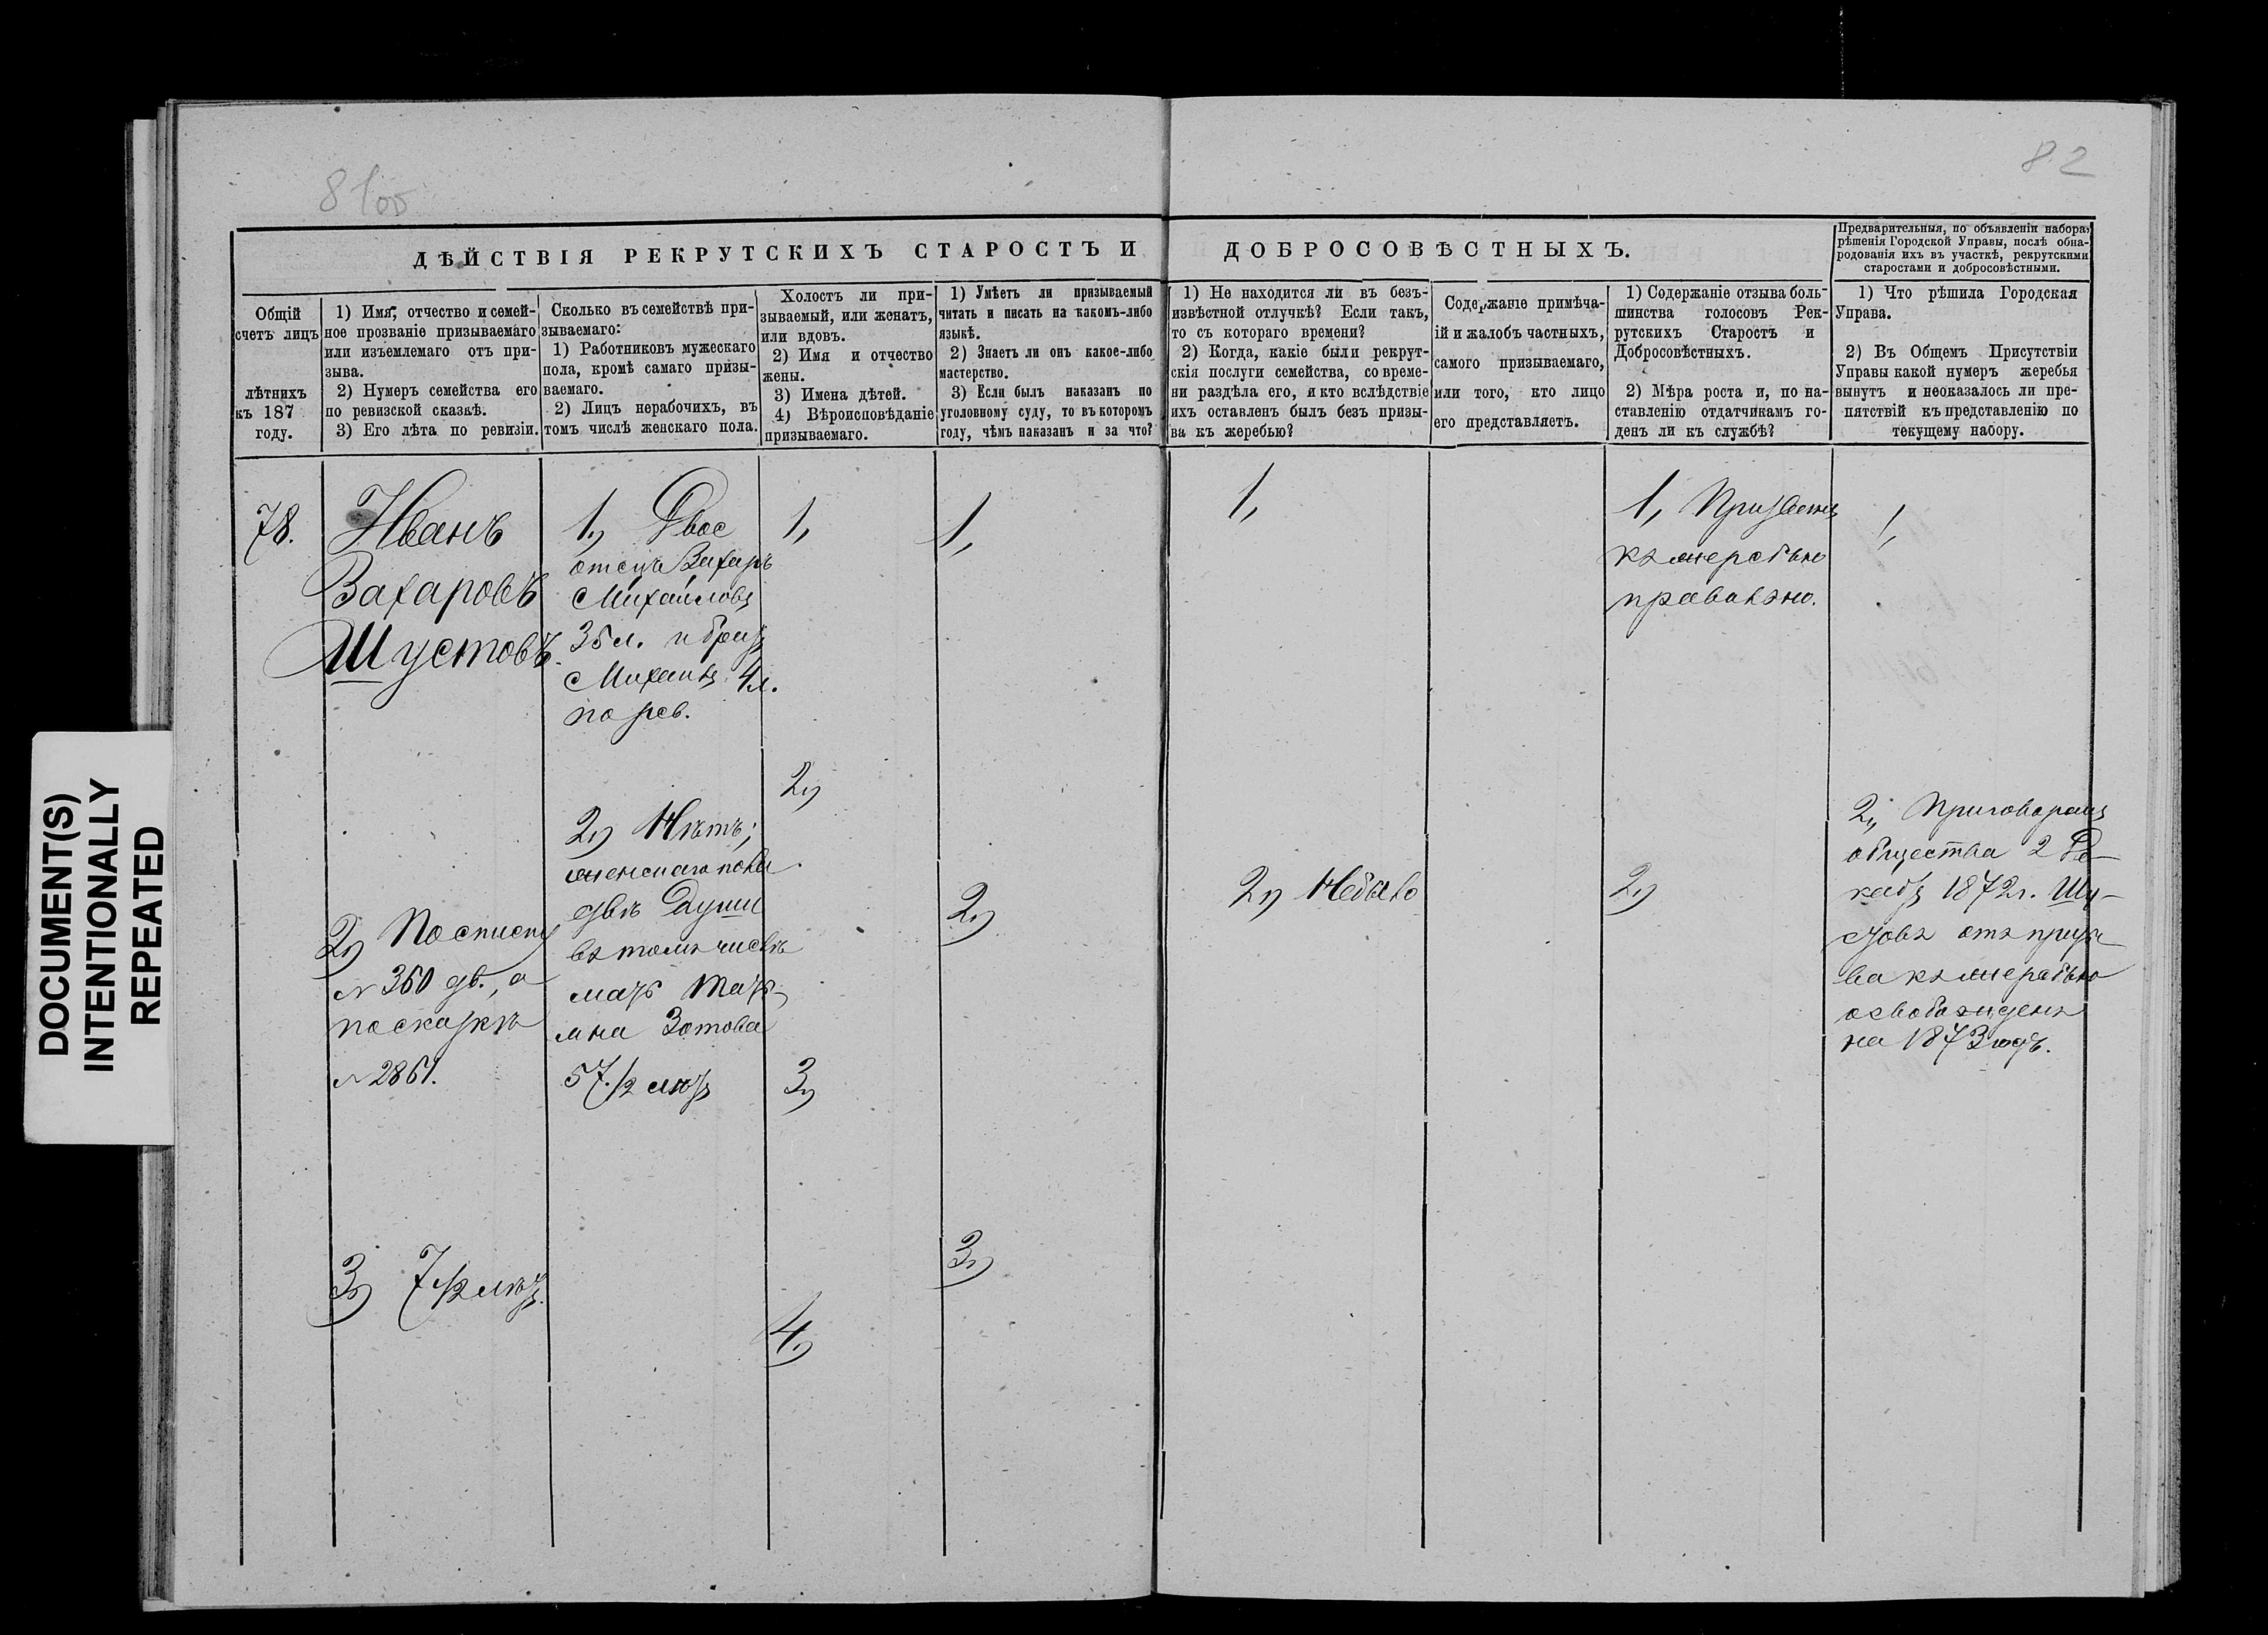 82
ДѢЙСТВІЯ РЕКРУТСКИХЪ СТАРОСТЪ И ДОБРОСОВѢСТНЫХЪ.
Предварительныя, по объявленіи набора,
рѣшенія Городской Управы, послѣ обна-
родованія ихъ въ участкѣ, рекрутскими
старостами и добросовѣстными.
Общій
счетъ лицъ
лѣтнихъ
къ 187
году.
1) Имя, отчество и семей-
ное прозваніе призываемаго
или изъемлемаго отъ при-
зыва.
2) Нумеръ семейства его
по ревизской сказкѣ.
3) Его лѣта по ревизіи.
Сколько въ семействѣ при-
зываемаго:
1) Работниковъ мужескаго
пола, кромѣ самаго призы-
ваемаго.
2) Лицъ нерабочихъ, въ
томъ числѣ женскаго пола.
Холостъ ли при-
зываемый, или женатъ,
или вдовъ.
2) Имя и отчество
жены.
3) Имена дѣтей.
4) Вѣроисповѣданіе
призываемаго.
1) Умѣетъ ли призываемый
читать и писать на какомъ-либо
языкѣ.
2) Знаетъ ли онъ какое-либо
мастерство.
3) Если былъ наказанъ по
уголовному суду, то въ которомъ
году, чѣмъ наказанъ и за что?
1) Не находится ли въ безъ-
извѣстной отлучкѣ? Если такъ,
то съ котораго времени?
2) Когда, какіе были рекрут-
скія послуги семейства, со време-
ни раздѣла его, и кто вслѣдствіе
ихъ оставленъ былъ безъ призы-
ва къ жеребью?
Содержаніе примѣча-
ій и жалобъ частныхъ,
самого призываемаго,
или того, кто лицо
его представляетъ.
1) Содержаніе отзыва боль-
шинства голосовъ Рек-
рутскихъ Старостъ и
Добросовѣстныхъ.
2) Мѣра роста и, по на-
ставленію отдатчикамъ го-
денъ ли къ службѣ?
1) Что рѣшила Городская
Управа.
2) Въ Общемъ Присутствіи
Управы какой нумеръ жеребья
вынутъ и неоказалось ли пре-
пятствій къ представленію по
текущему набору.
78.
Иванъ
Захаровъ
Шустовъ.
2) По списку
№ 360 дв., а
по сказкѣ
№ 2861.
3) 7 1/2 лѣтъ.
1, Двое
отецъ Захаръ
Михайловъ
35 л. и братъ
Михаилъ 4 л.
по рев.
2) Нѣтъ;
женскаго пола
двѣ души
въ томъ числѣ
мать Татья-
на Зотова
57 1/2 лѣтъ
1,
2)
3)
4)
1,
2)
3)
1,
2) Небыло
1, Призывъ
къ жеребью
правильно.
2)
1,
2, Приговоромъ
общества 2 Де-
кабр 1872 г. Шу-
стовъ отъ призы-
ва къ жеребью
освобожденъ
на 1873 годъ.
DOCUMENT(S)
INTENTIONALLY
REPEATED